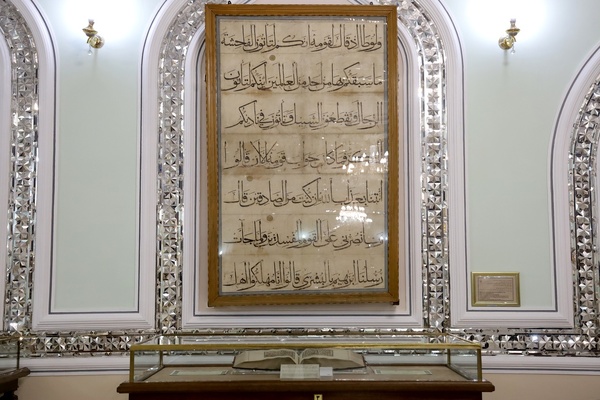 ولوطا اذ قال لقومه انكم لتاتون الفاحشة
ما سبقكم بها من احد من العالمين ائنكم لتاتون
الرجال وتقطعون السبيل وتاتون في ناديكم
المنكر فما كان جواب قومه الا ان قالوا
ائتنا بعذاب الله ان كنت من الصادقين قال
رب انصرني على القوم المفسدين ولما جات
رسلنا ابرهيم بالبشرى قالوا انا مهلكوا اهل